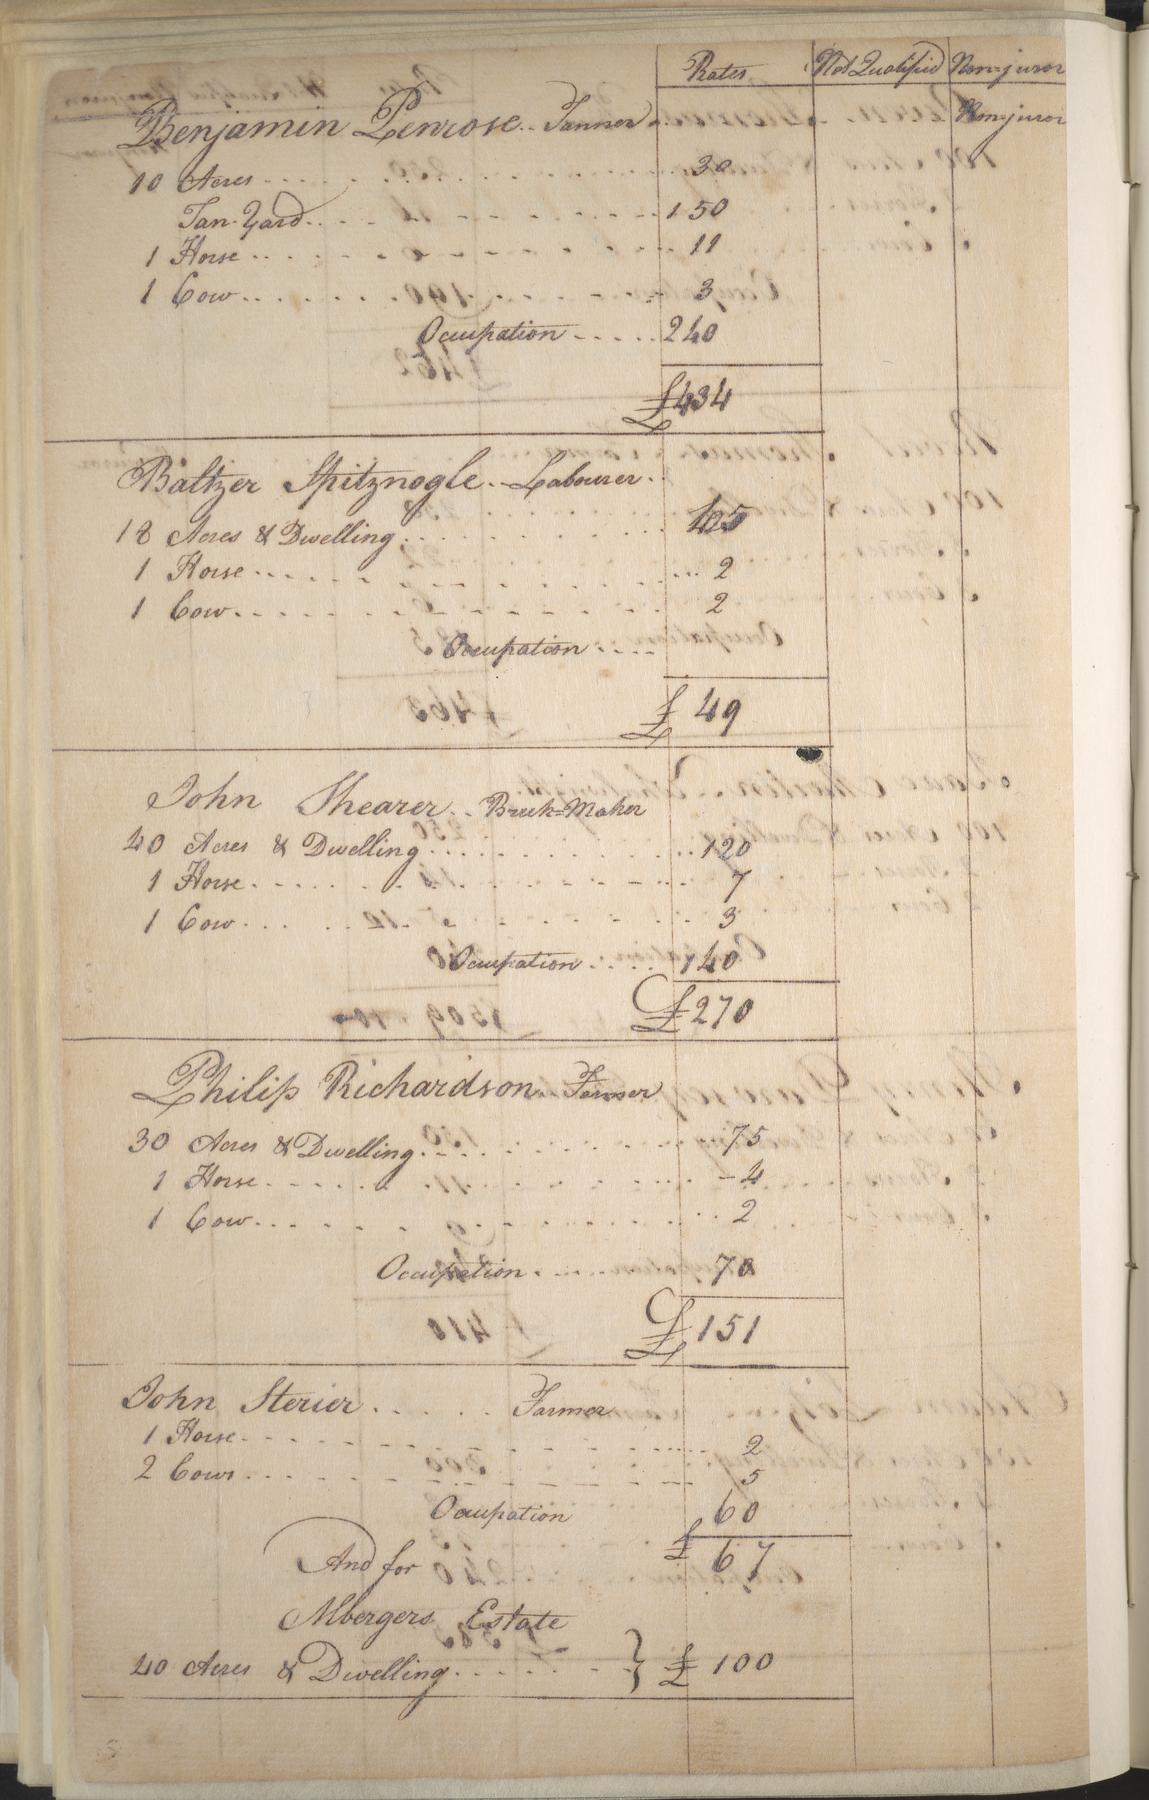 Rates Not Qualified Non-juror
Benjamin Penrose.. Tanner. Non-juror
10 Acres 30
Tan-Yard 150
1 Horse 11
1 Cow 3
Occupation 240
£434
Baltzer Spitznogle.. Labourer.
18 Acres & Dwelling 45
1 Horse 2
1 Cow 2
Occupation
£ 49
John Shearer.. Brick=Maker
40 Acres & Dwelling 120
1 Horse 7
1 Cow 3
Occupation 140
£270
Philip Richardson. Farmer
30 Acres & Dwelling 75
1 Horse 4
1 Cow 2
Occupation 70
£151
John Sterier Farmer
1 Horse 2
2 Cows 5
Occupation 60
£ 67
And for
Albergers Estate
40 Acres & Dwelling } £ 100